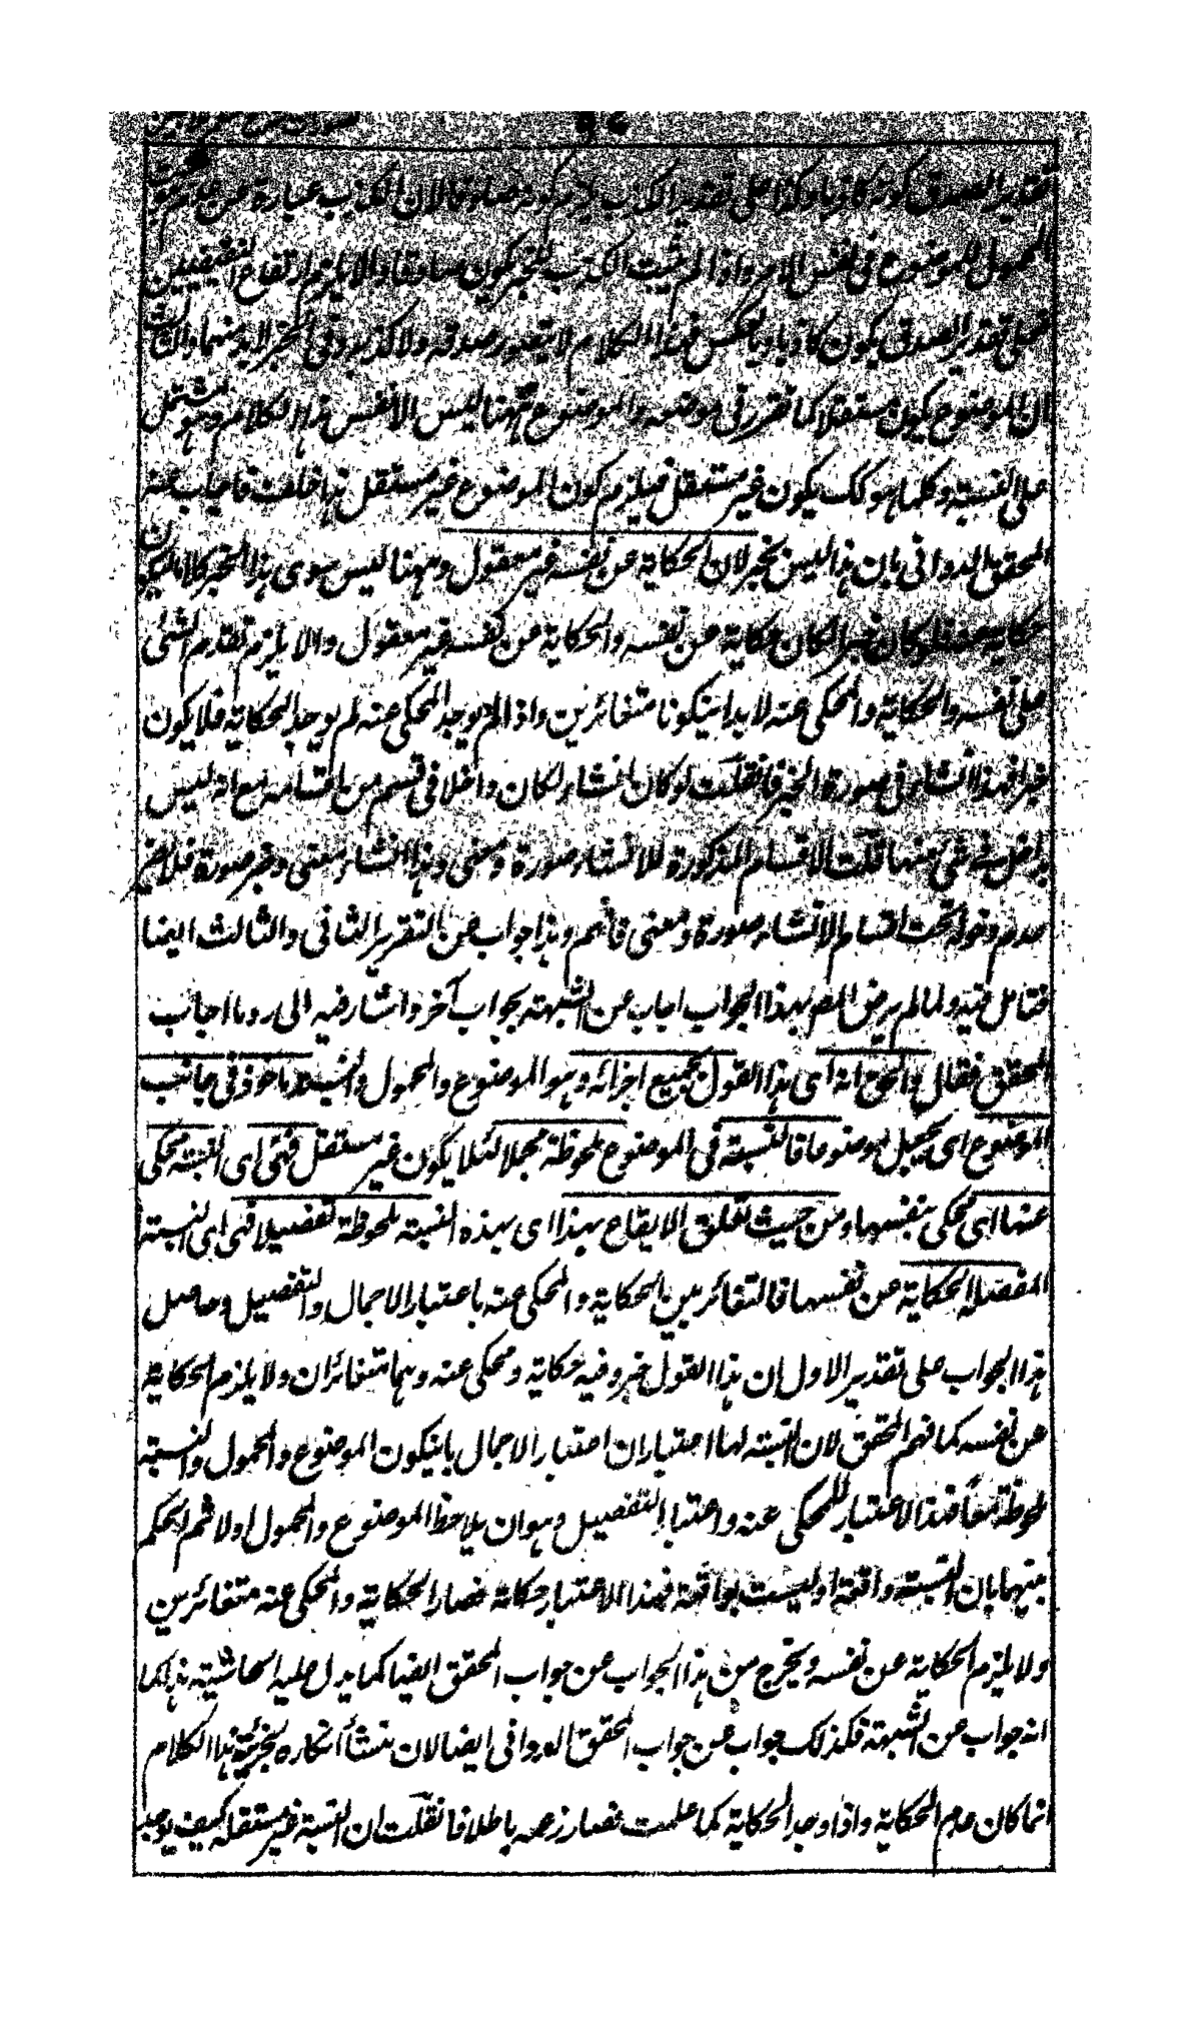 تقدير الصدق كونه كاذبا وكذا على تقدير الكذب يلزم كونه صادقا لان الكذب عبارة عن عدم ثبوت
المحمول للموضوع في نفس الامر واذا لم يثبت الكذب للخبر يكون صادقا والا يلزم ارتفاع النقيضين
فعلى تقدير الصدق يكون كاذبا وبالعكس فهذا الكلام لا يتصور صدقه ولا كذبه وفي الخبر لا بد منهما والثالث
ان الموضوع يكون مستقلا كما تقرر في موضعه والموضوع ههنا ليس الا نفس هذا الكلام وهو مشتمل
على النسبة وكلما هو كك يكون غير مستقل فيلزم كون الموضوع غير مستقل هذا خلف فاجاب عنه
المحقق الدواني بان هذا ليس بخبر لان الحكاية عن نفسه غير معقول وههنا ليس سوى هذا الخبر كلاما ليكون
حكاية عنه فلو كان خبرا لكان حكاية عن نفسه والحكاية عن نفسه غير معقول والا يلزم تقدم الشئ
على نفسه والحكاية والمحكى عنه لا بد اينكونا متغائرين واذا لم يوجد المحكى عنه لم يوجد الحكاية فلا يكون
خبرا فهذا انشاء في صورة الخبر فانقلت لو كان انشاء لكان داخلا في قسم من اقسامه مع انه ليس
بداخل في شئ منها قلت الاقسام المذكورة للانشاء صورة ومعنى وهذا انشاء معنى وخبر صورة فلا ضير
عدم دخوله تحت اقسام الانشاء صورة ومعنى فافهم وهذا جواب عن التقرير الثاني والثالث ايضا
فتامل فيه ولما لم يرض المصر بهذا الجواب اجاب عن الشبهة بجواب آخر واشار فيه الى رد ما اجاب
المحقق فقال والحق انه اى هذا القول بجميع اجزائه وهو الموضوع والمحمول والنسبة ماخوذ في جانب
الموضوع اى يجعل موضوعا فالنسبة في الموضوع ملحوظة مجملا لئلا يكون غير مستقل فهى اى النسبة محكى
عنها اى محكى بنفسها ومن حيث تعلق الايقاع بهذا اى بهذه النسبة ملحوظة تفصيلا فهى اى النسبة
المفصلة الحكاية عن نفسها فالتغائر بين الحكاية والمحكى عنه باعتبار الاجمال والتفصيل وحاصل
هذا الجواب على تقدير الاول ان هذا القول خبر وفيه حكاية ومحكى عنه وهما متغائران ولا يلزم الحكاية
عن نفسه كما فهم المحقق لان النسبة لها اعتباران اعتبار الاجمال باينكون الموضوع والمحمول والنسبة
ملحوظة معا فهذا الاعتبار للمحكى عنه واعتبار التفصيل وهو ان يلاحظ الموضوع والمحمول اولا ثم الحكم
بينهما بان النسبة واقعة او ليست بواقعة فهذا الاعتبار حكاية فصار الحكاية والمحكى عنه متغائرين
ولا يلزم الحكاية عن نفسه ويخرج من هذا الجواب عن جواب المحقق ايضا كما يدل عليه الحاشية هذا كما
انه جواب عن الشبهة فكذلك جواب عن جواب المحقق الدواني ايضا لان منشأ انكاره بخبرية هذا الكلام
انما كان عدم الحكاية واذا وجد الحكاية كما علمت فصار زعمه باطلا فانقلت ان النسبة غير مستقلة كيف يوجد